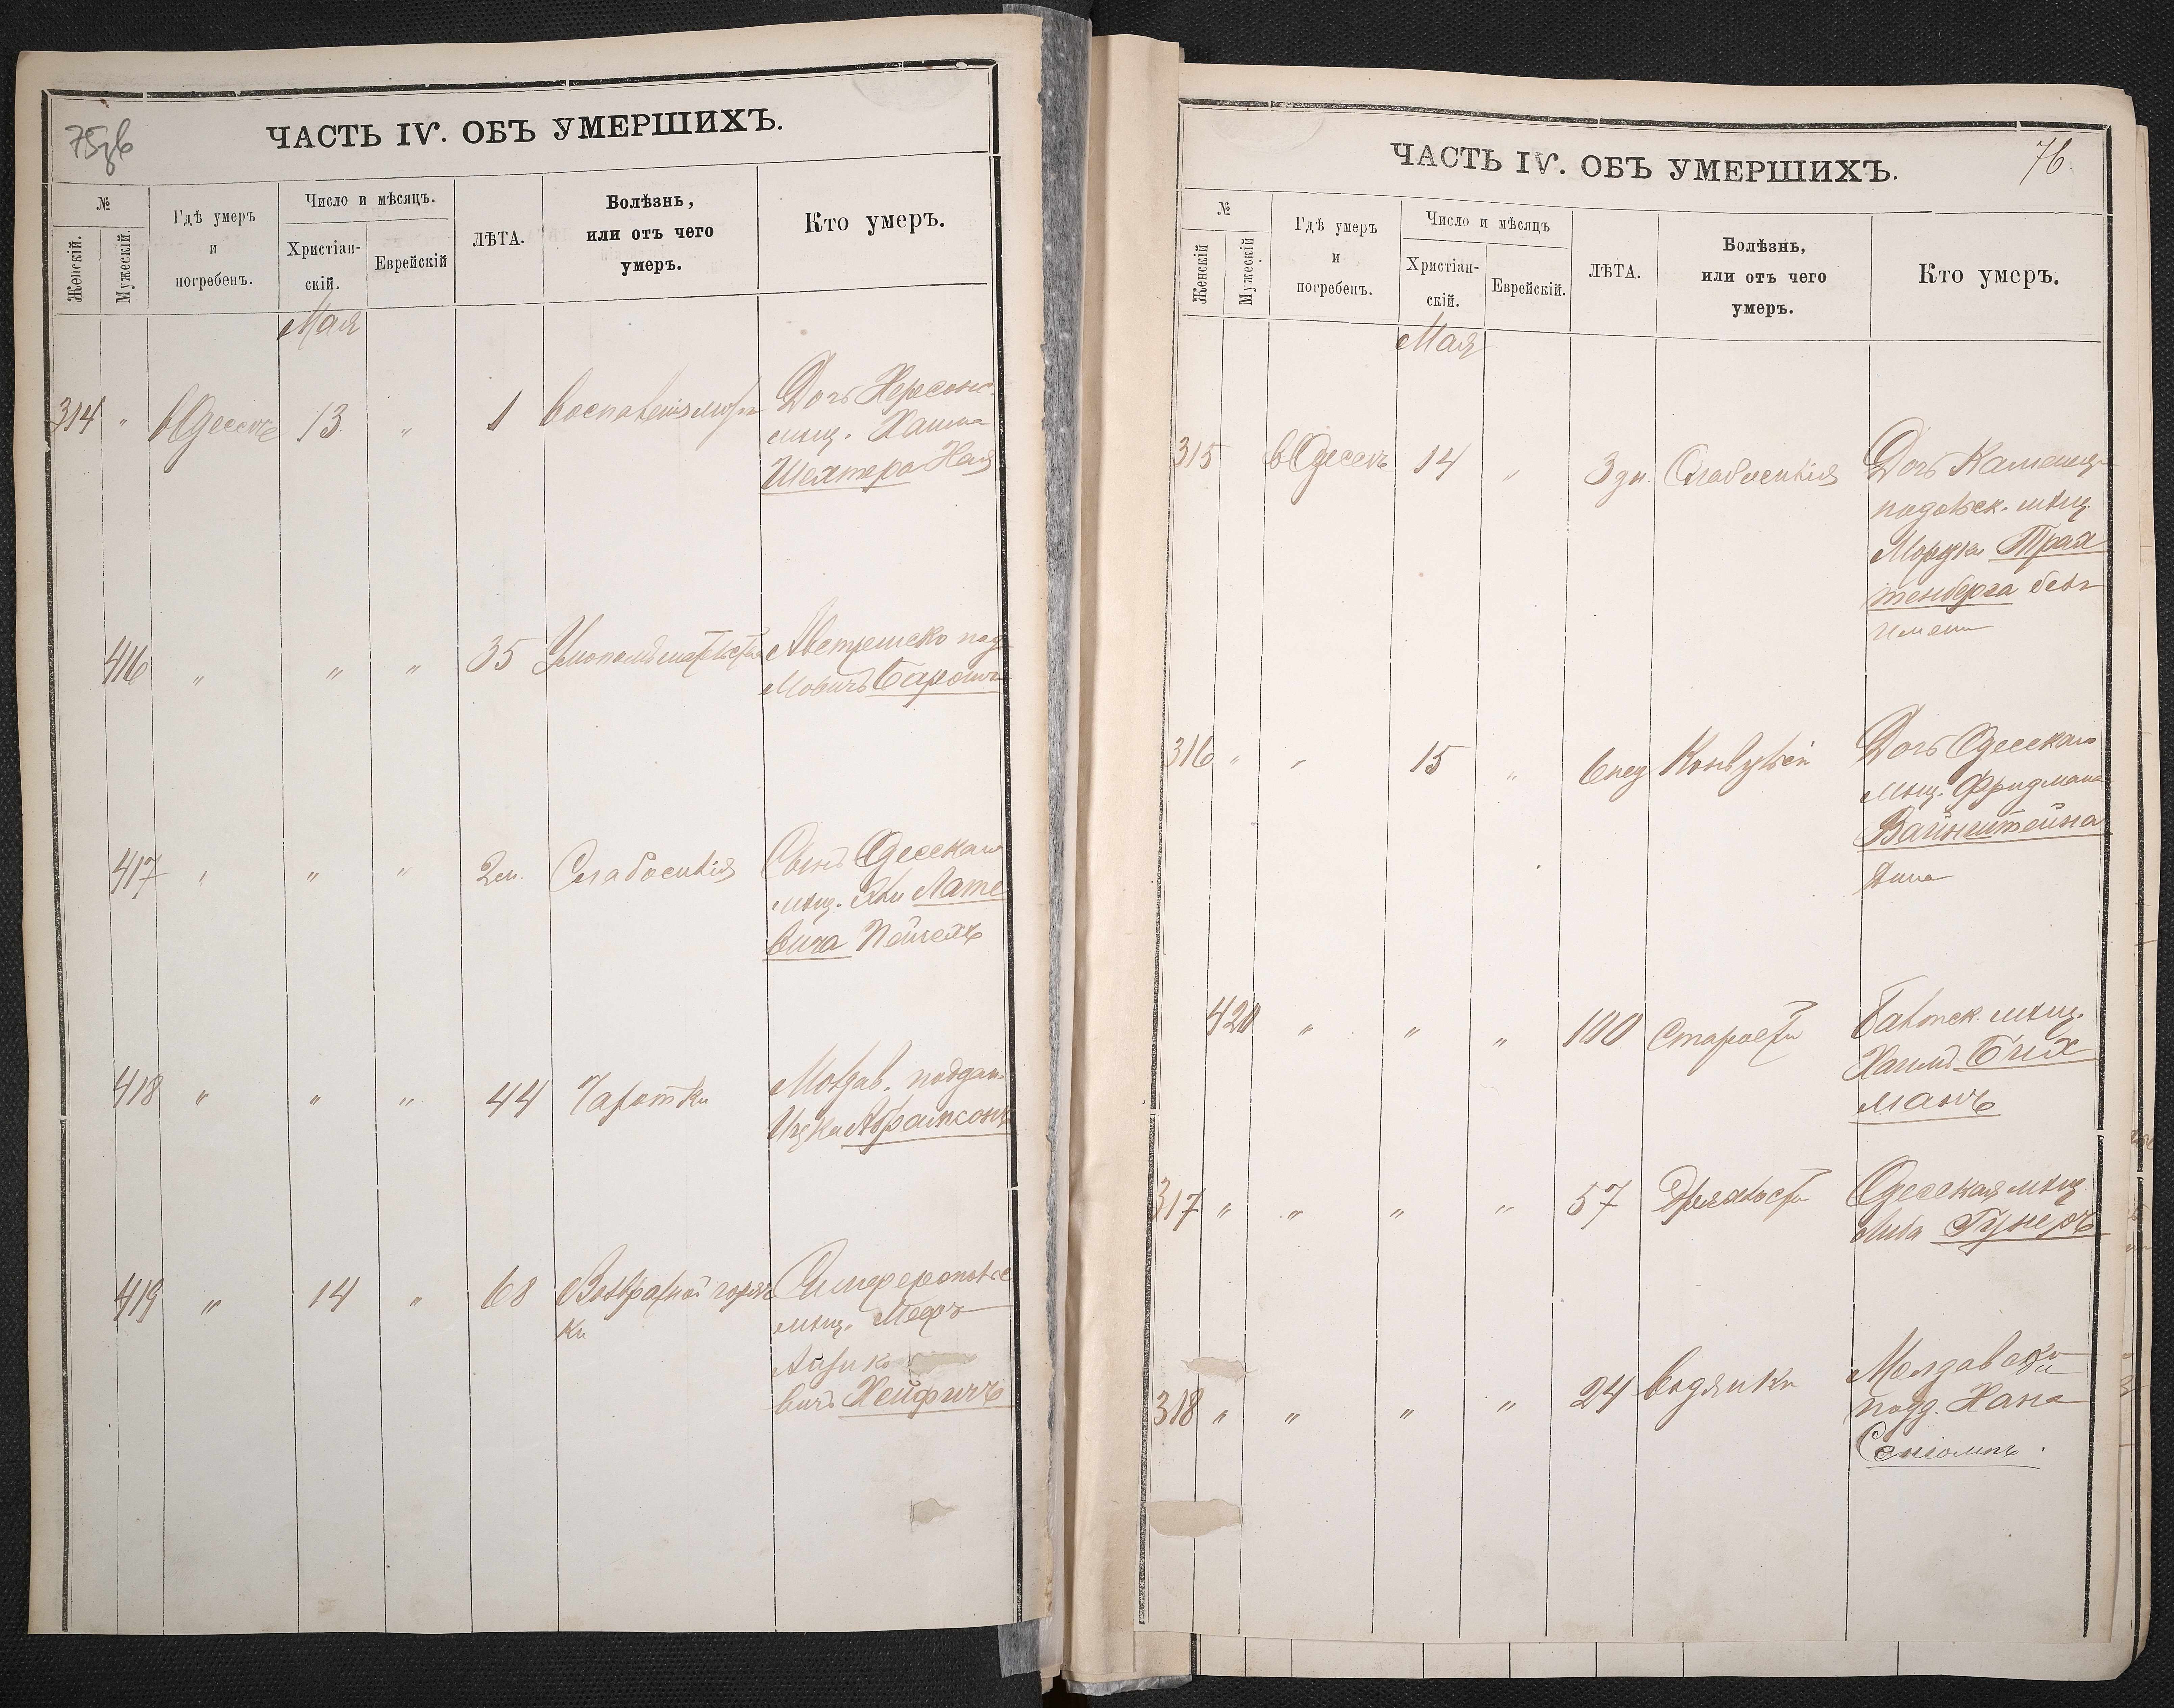 75зв
ЧАСТЬ IV. ОБЪ УМЕРШИХЪ.
№
Женскій.
Мужескій.
Гдѣ умеръ
и
погребенъ.
Число и мѣсяцъ.
Христіан-
скій.
Еврейскій
ЛѢТА.
Болѣзнь,
или отъ чего
умеръ.
Кто умеръ.
Мая
314 " вОдессѣ 13 " 1 Дочь Херсонс.
мѣщ.
Шехтера Хая
416 " " " 35 Австрійско под
417 " " " 2 м. Слабосилія Сынъ Одесскаго
мѣщ. Лате
вича Пейсехъ
418 " " " 44 Чахотки Молдав. поддан.
Ицка Абрамсонъ
419 " 14 " 68 Возвратной горяч Симферопольс
ки мѣщ.
Айзико
вичъ Хейфичъ
76.
ЧАСТЬ IV. ОБЪ УМЕРШИХЪ.
№
Женскій
Мужескій
Гдѣ умеръ
и
погребенъ.
Число и мѣсяцъ
Христіан-
скій.
Еврейскій.
ЛѢТА.
Болѣзнь,
или отъ чего
умеръ.
Кто умеръ.
Мая
315 вОдессѣ 14 " 3 дн. Слабосилія Дочь Каменец
подольск. мѣщ.
Мордка Трах
тенберга безъ
имени
316 " " 15 " 6 нед Конвульсіи Дочь Одесскаго
мѣщ. Фридмана
Вайнштейна
420 " " " 100 Старости Балтск. мѣщ.
Хаимъ
манъ
317 " " " " 57 Дряхлости Одесская мѣщ.
318 " " " " 24 водянки Молдавско
подд. Хана